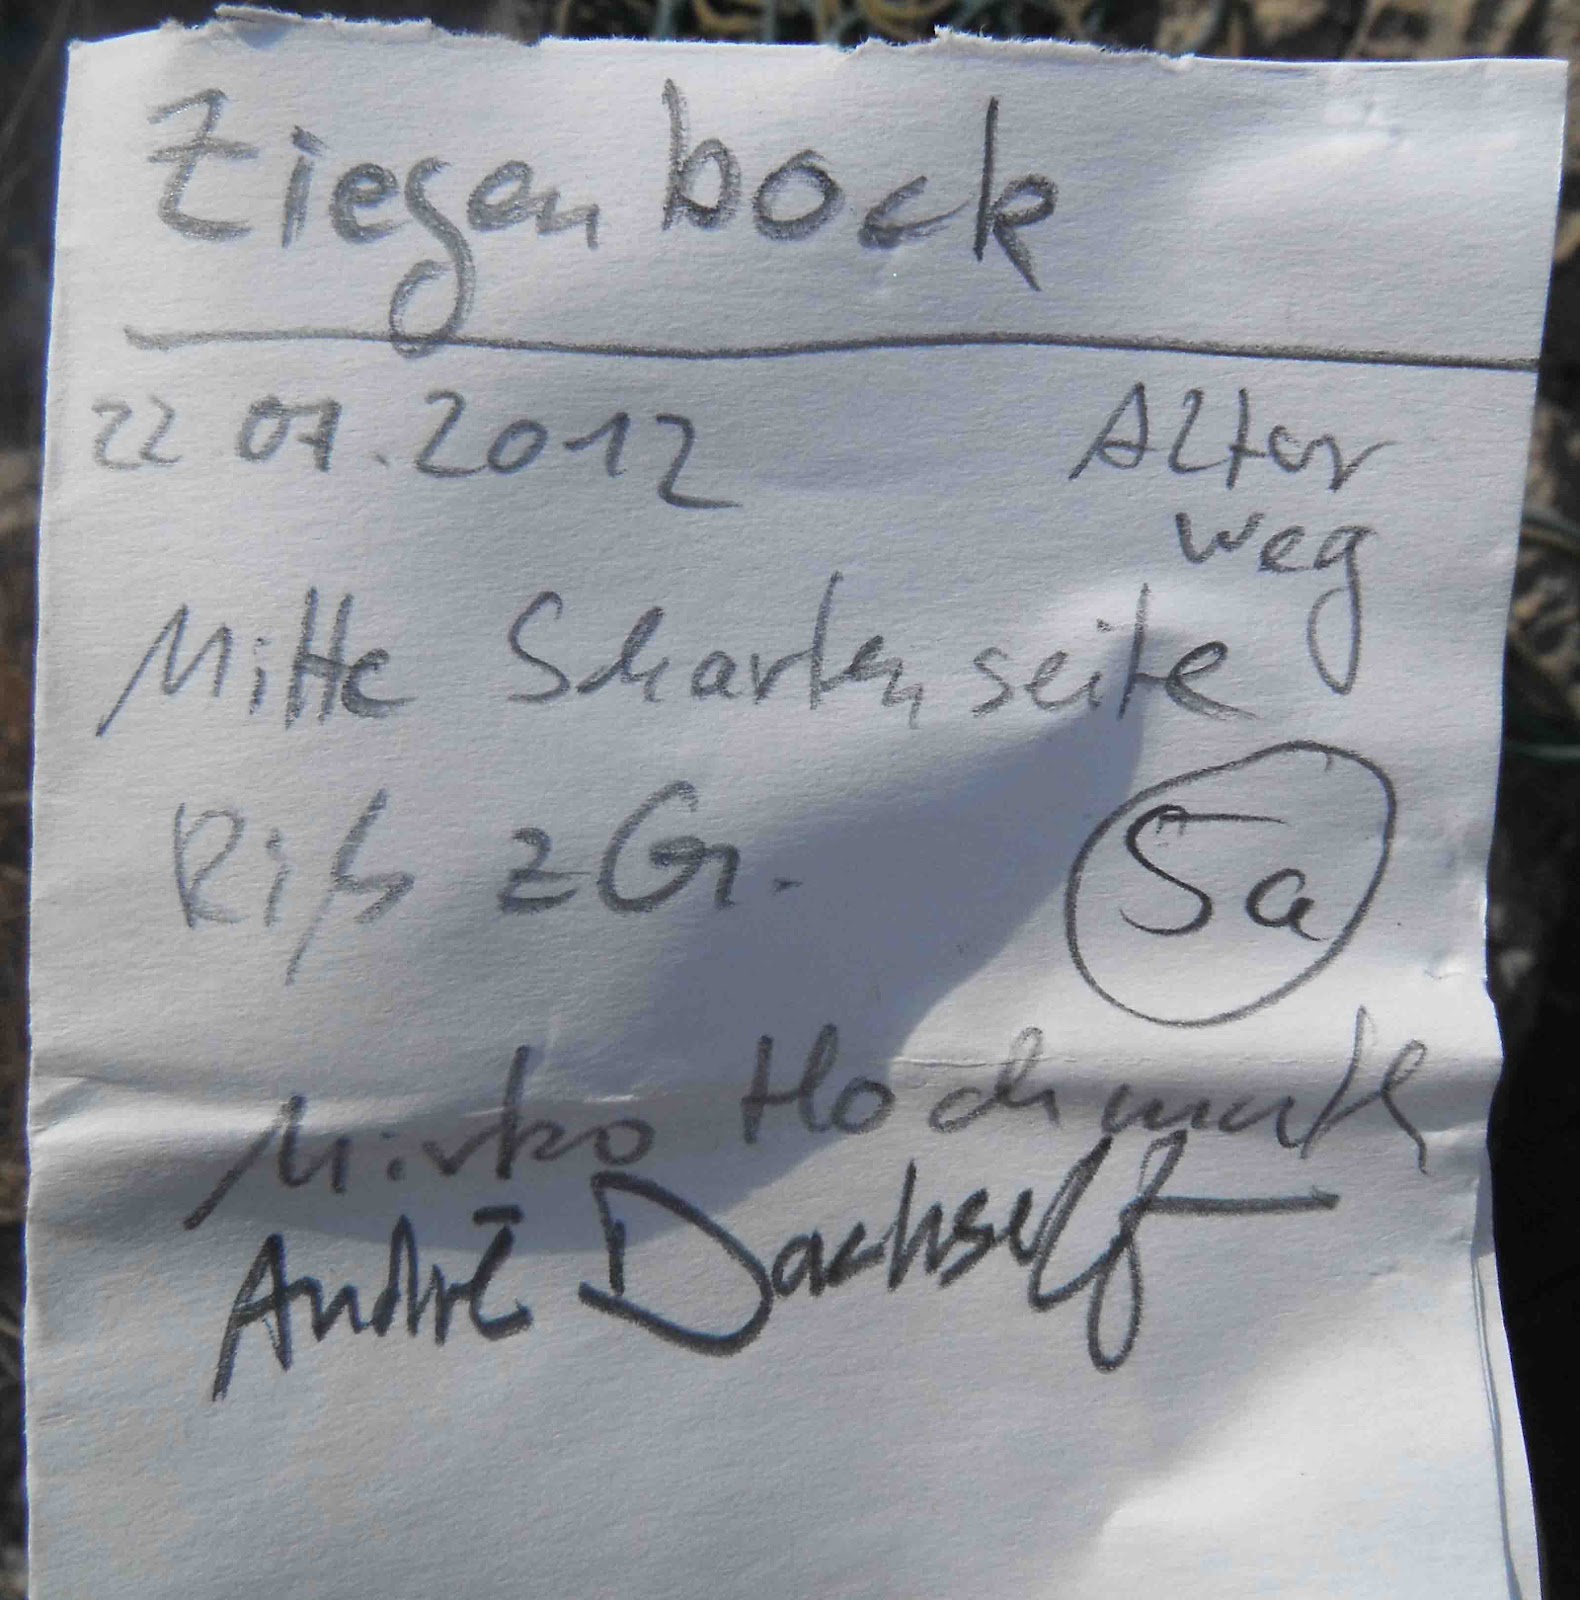 Ziegenbock
22 07.2012 Alter
weg
Mitte Schartenseite
Riß z Gr. 5a
Mirko Hochmuth
André Dachself